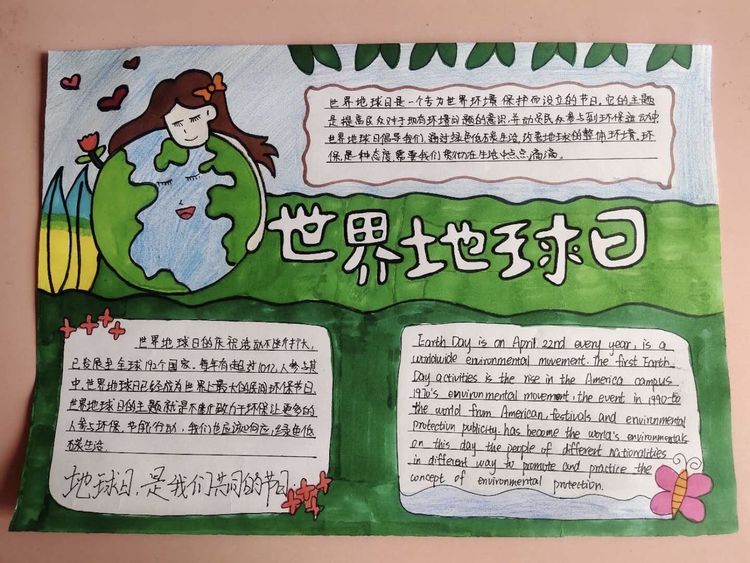 世界地球日是一个专为世界环境保护而设立的节日,它的主题
是提高民众对于现有环境问题的意识,并动员民众参与到环保运动中
世界地球日倡导我们,通过绿色低碳生活,改善地球的整体环境。环
保,是一种态度,需要我们贯彻在生活中点点滴滴。
世界地球日
世界地球日的庆祝活动不断扩大,
已发展至全球192个国家。每年有超过10亿人参与其
中,世界地球日已经成为世界上最大的民间环保节日,
世界地球日的主题就是不懂致力于环保让更多的
人参与环保、节能行动,我们也应该响应,绿色低
碳生活.
地球日,是我们共同的节日.
Earth Day is on April 22nd every year, is a
worldwide environmental movement. The first Earth
Day activities is the rise in the America campus
1970's environmental movement, the event in 1990 to
the world from American, festivals and environmental
protection publicity has become the world's environmentals
on this day the people of different nationalities
in different way to promote and practice the
concept of environmental protection.